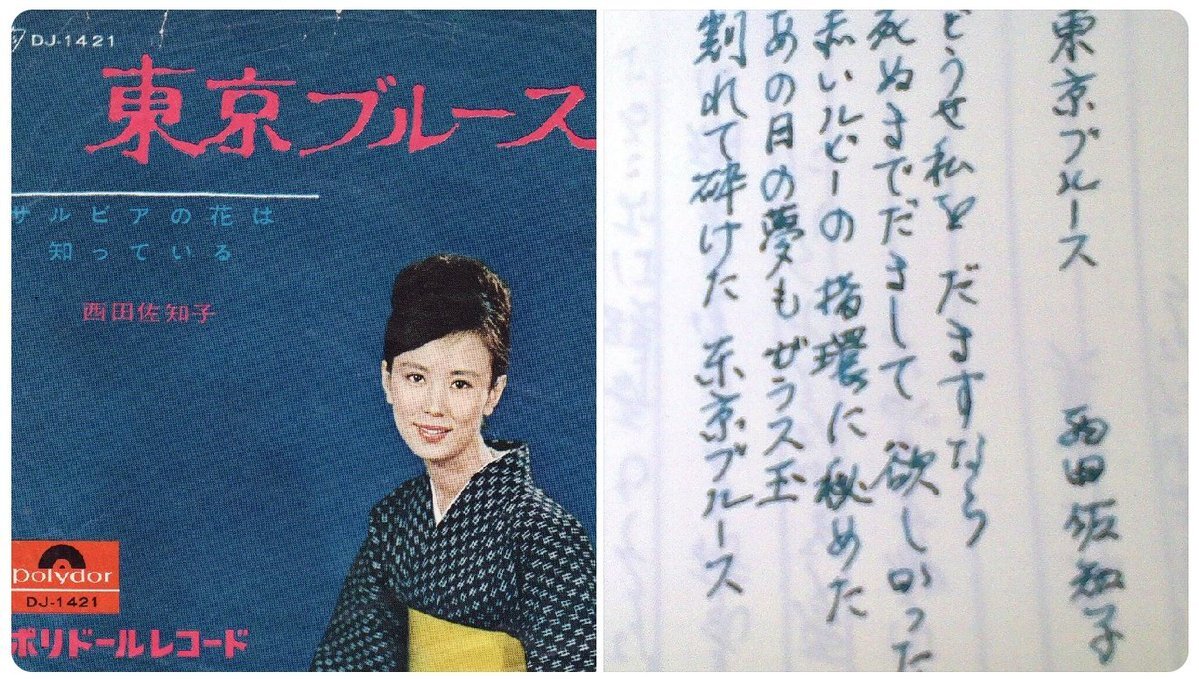 DJ-1421
東京ブルース
サルビアの花は
知っている
西田佐知子
polydor
DJ-1421
ポリドールレコード
東京ブルース 西田佐知子
どうせ私を だますなら
死ぬまでだまして 欲しかった
赤いルビーの 指環に秘めた
あの日の夢も ガラス玉
割れて砕けた 东京ブルース